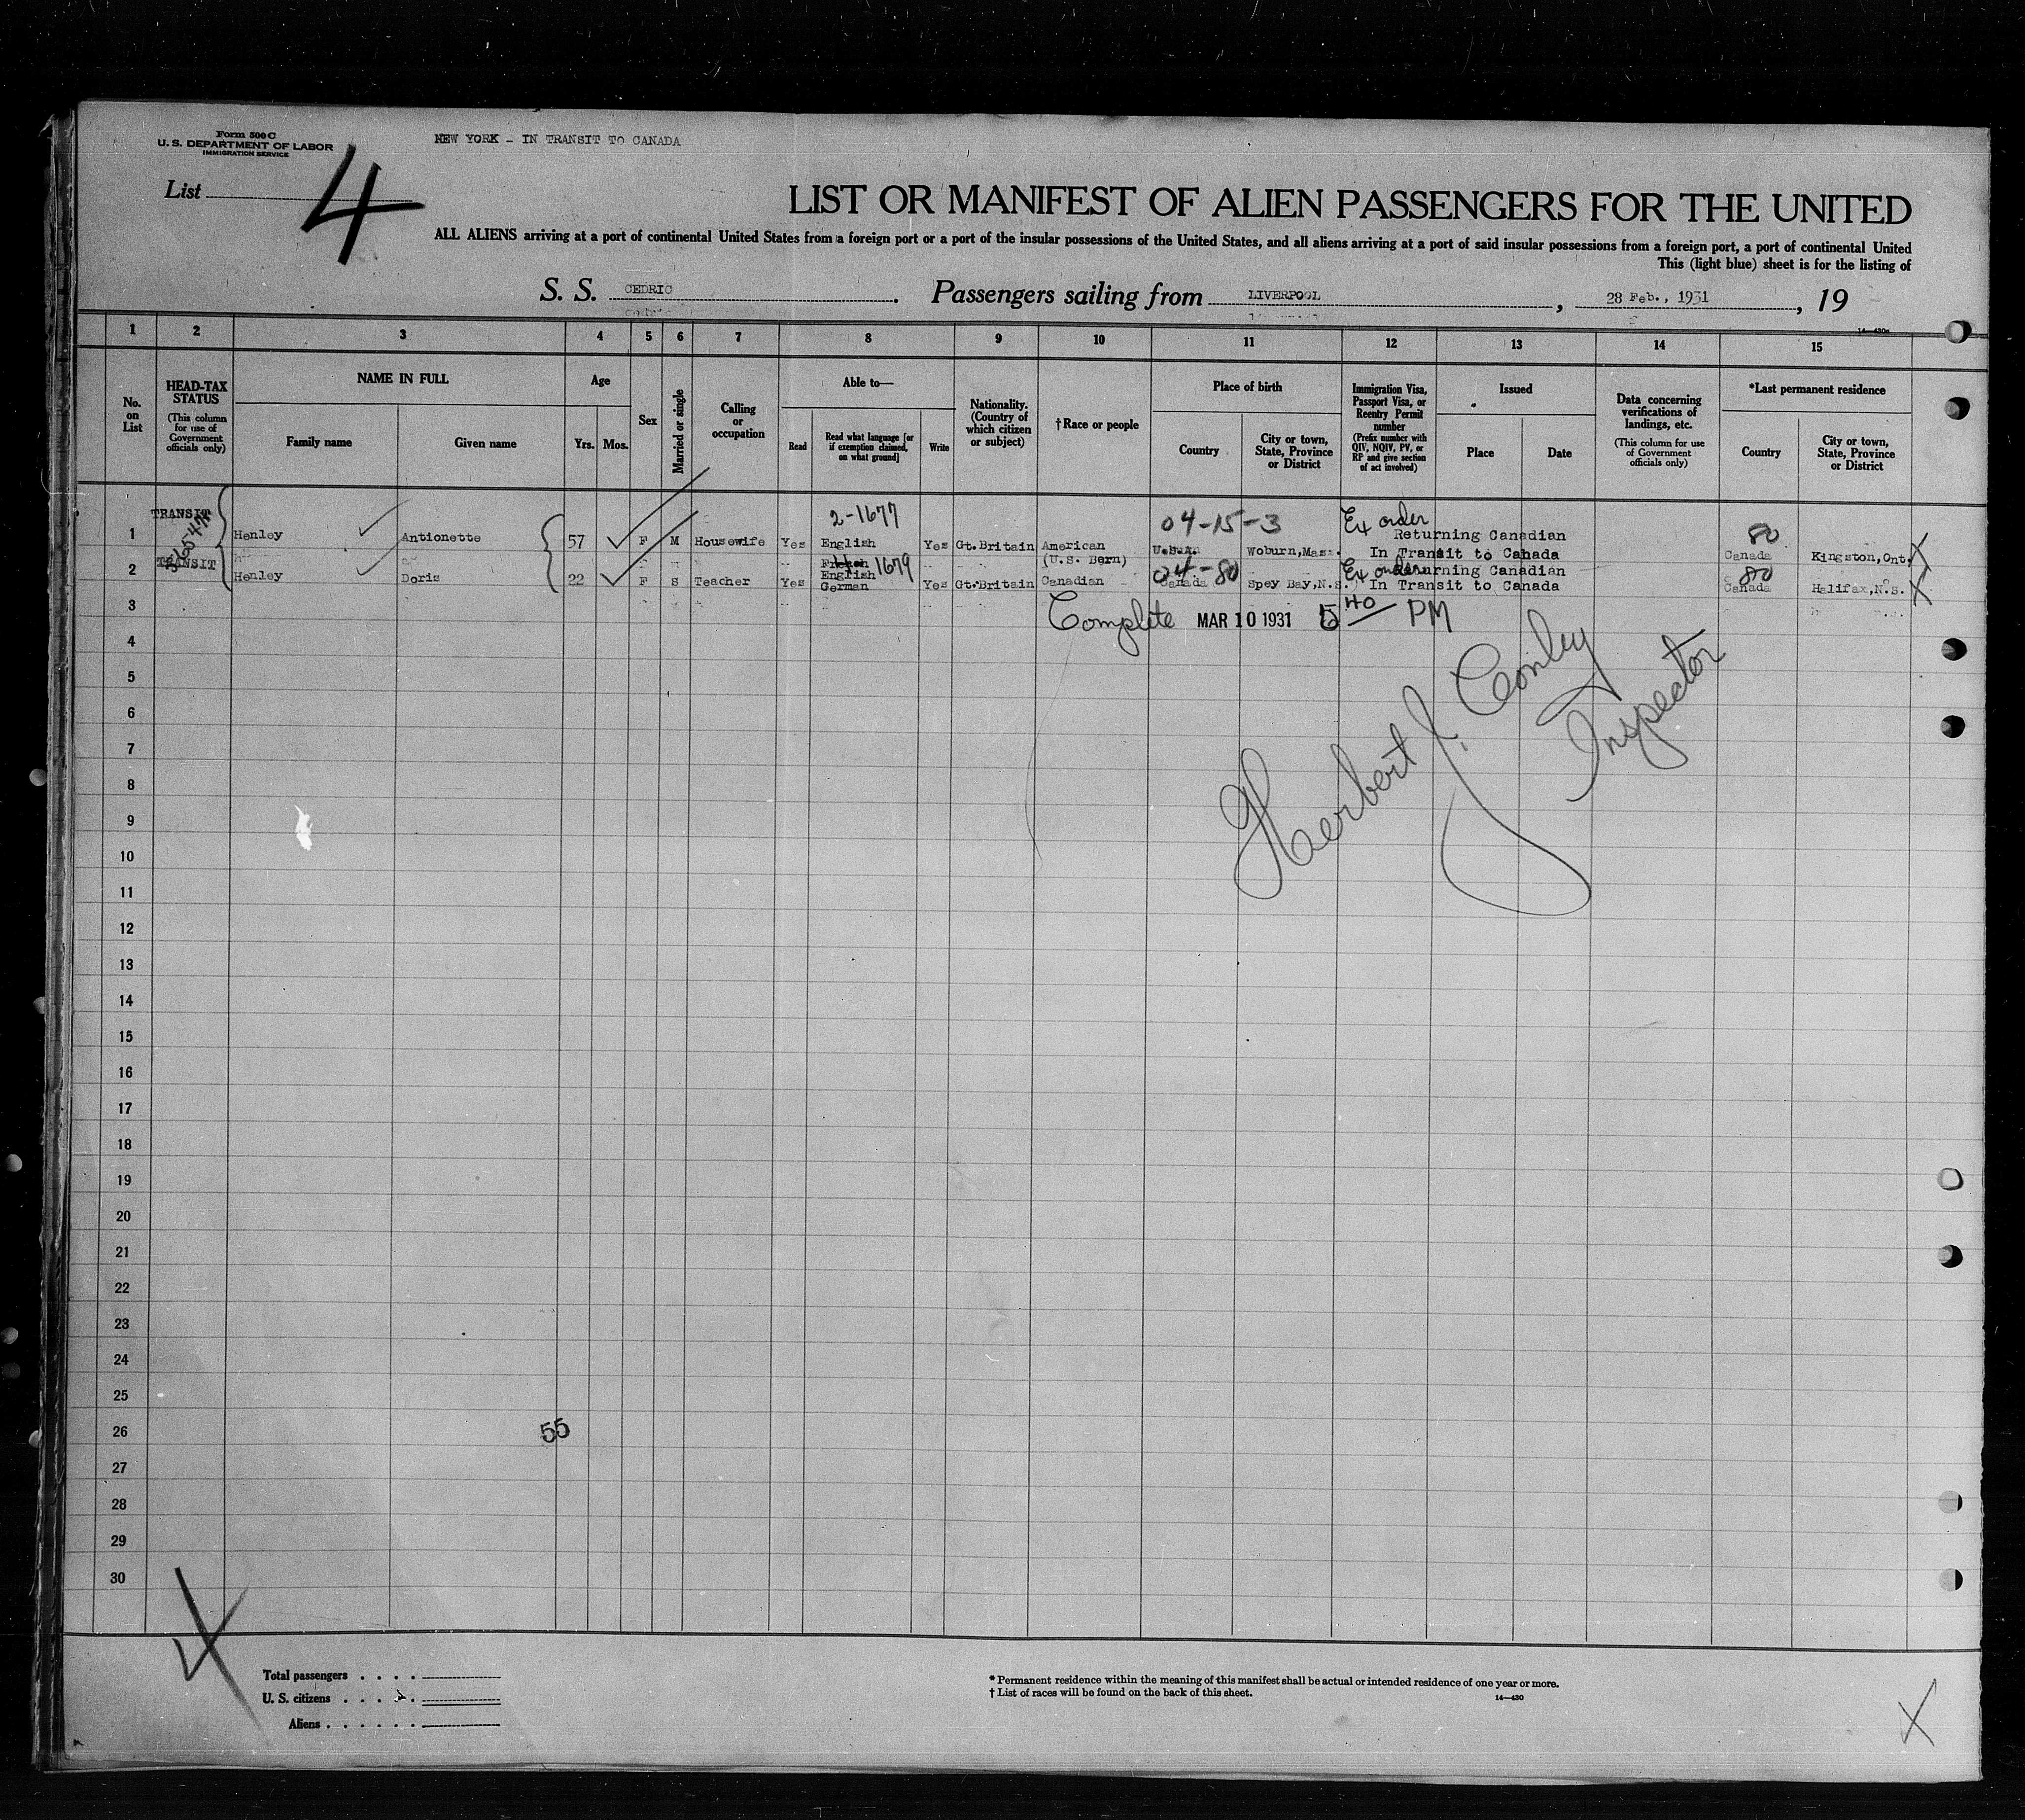 Form 500 C
U. S. DEPARTMENT OF LABOR
IMMIGRATION SERVICE
NEW YORK - IN TRANSIT TO CANADA
List
4
LIST OR MANIFEST OF ALIEN PASSENGERS FOR THE UNITED
ALL ALIENS arriving at a port of continental United States from a foreign port or a port of the insular possessions of the United States, and all aliens arriving at a port of said insular possessions from a foreign port, a port of continental United
This (light blue) sheet is for the listing of
S. S. CEDRIC . Passengers sailing from LIVERPOOL , 28 Feb., 1931 , 19
14—430a
1 2 3 4 5 6 7 8 9 10 11 12 13 14 15
No. on List
HEAD-TAX STATUS
(This column for use of Government officials only)
NAME IN FULL
Family name
Given name
Age
Yrs. Mos.
Sex
Married or single
Calling or occupation
Able to—
Read
Read what language [or if exemption claimed, on what ground]
Write
Nationality. (Country of which citizen or subject)
†Race or people
Place of birth
Country
City or town, State, Province or District
Immigration Visa, Passport Visa, or Reentry Permit number
(Prefix number with QIV, NQIV, PV, or RP and give section of act involved)
Issued
Place
Date
Data concerning verifications of landings, etc.
(This column for use of Government officials only)
*Last permanent residence
Country
City or town, State, Province or District
2-1677 04-15-3 Ex order 80
1 TRANSIT Henley Antionette 57 F M Housewife Yes English Yes Gt.Britain American (U.S. Born) U.S.A. Woburn,Mass. Returning Canadian In Transit to Canada Canada Kingston,Ont.
1679 04-80 Ex order 80
2 TRANSIT Henley Doris 22 F S Teacher Yes French English German Yes Gt.Britain Canadian Canada Spey Bay,N.S. Returning Canadian In Transit to Canada Canada Halifax,N.S.
3
Complete MAR 10 1931 5 40 PM
4
5
6
7
8
9
10
11
12
13
14
15
16
17
18
19
20
21
22
23
24
25
26
27
28
29
30
Herbert J. Conley
Inspector
55
Total passengers . . . .
U. S. citizens . . . .
Aliens . . . . . .
* Permanent residence within the meaning of this manifest shall be actual or intended residence of one year or more.
† List of races will be found on the back of this sheet.
14—430
X